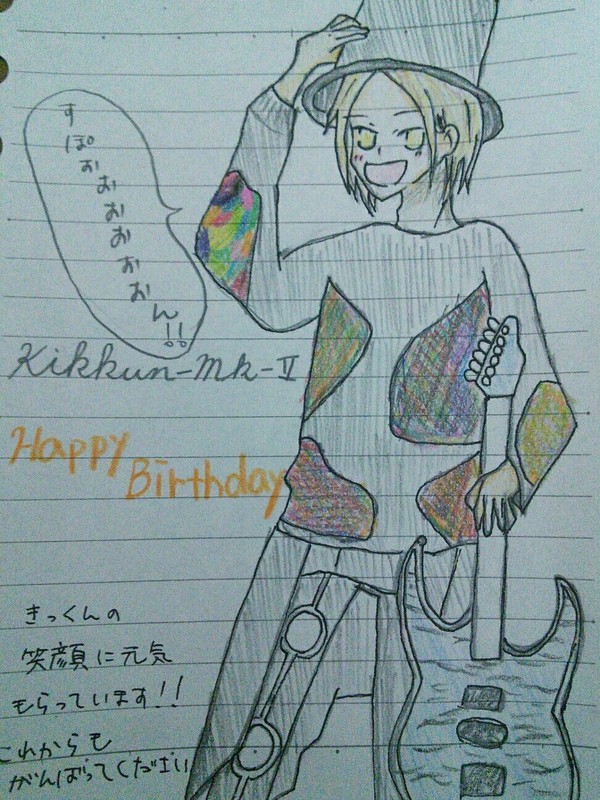 すぽぉぉぉぉぉぉん!!
Kikkun-mk-Ⅱ
Happy
Birthday
きっくんの
笑顔に元気
もらっています!!
これからも
がんばってください